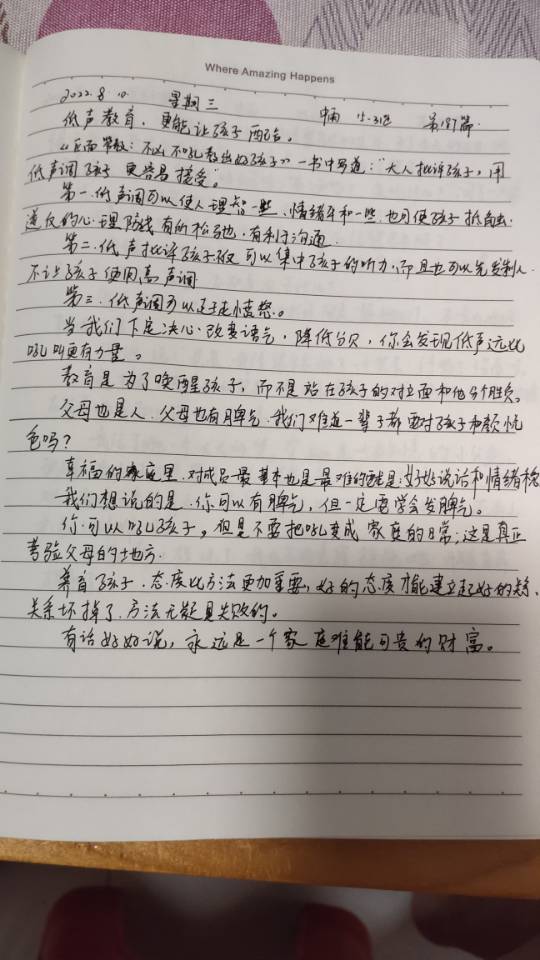 Where Amazing Happens
2022.8.10. 星期三 15-31℃ 第187篇
低声教育，更能让孩子配合。
《正面管教：不吼不叫教出好孩子》一书中写道：“大人批评孩子，用
低声调孩子更容易接受。”
第一.低声调可以使人理智一些、情绪平和一些也可使孩子抵触
逆反的心理防线有所松弛，有利于沟通.
第二.低声批评孩子不仅可以集中孩子的听力，而且也可以先发制人.
不让孩子使用高声调
第三.低声调可以制止愤怒。
当我们下定决心.改变语气，降低分贝，你会发现低声远比
吼叫更有力量。
教育是为了唤醒孩子，而不是站在孩子的对立面和他分个胜负。
父母也是人.父母也有脾气.我们难道一辈子都要对孩子和颜悦
色吗？
幸福的家庭里.对成员最基本也是最难的就是：好好说话和情绪稳
我们想说的是.你可以有脾气，但一定要学会发脾气。
你可以吼孩子，但是不要把吼变成家庭的日常；这是真正
考验父母的地方.
养育孩子.态度比方法更加重要，好的态度才能建立起好的关系、
关系坏掉了.方法无疑是失败的。
有话好好说，永远是一个家庭难能可贵的财富。